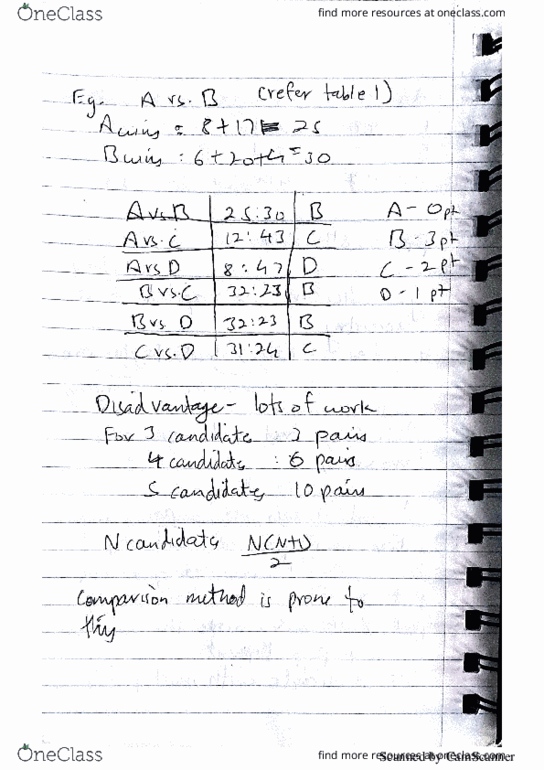 OneClass find more resources at oneclass.com
Eg. A vs. B (refer table 1)
A wins = 8+17 = 25
B wins : 6+20+4=30
A vs B 25:30 B A - 0 pt
A vs. C 12:43 C B - 3 pt
A vs D 8:47 D C - 2 pt
B vs. C 32:23 B D - 1 pt
B vs D 32:23 B
C vs. D 31:24 C
Disadvantage - lots of work
For 3 candidate : 2 pairs
4 candidate, : 6 pairs
5 candidates, 10 pairs
N candidates N(N+1)
2
Comparison method is prone to
OneClass find more resources at oneclass.com
Scanned by CamScanner